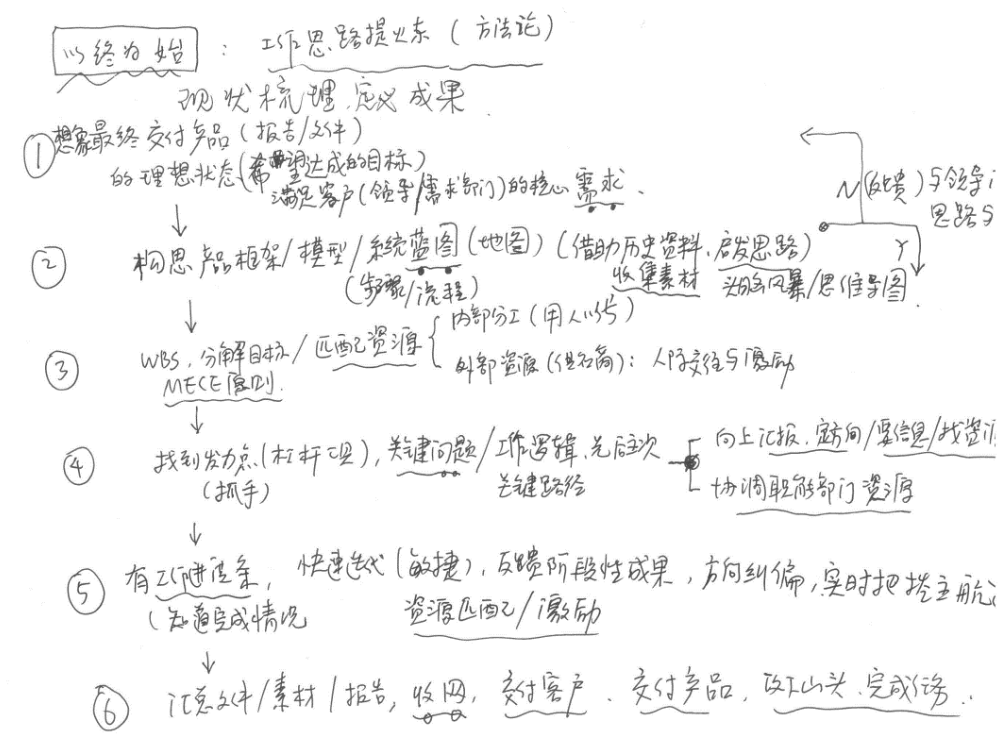 以终为始：工作思路提业东（方法论）
现状梳理、定义成果
① 想象最终交付产品（报告/文件）
的理想状态（希望达成的目标）
满足客户（领导/需求部门）的核心需求.
N(反馈) 与领导
思路与
Y
② 构思产品框架/模型/系统蓝图（地图）（借助历史资料、启发思路）
（步骤/流程） 收集素材 头脑风暴/思维导图.
③ WBS、分解目标/匹配资源 内部分工（用人识能）
MECE原则. 外部资源（供应商）：人际交往与激励
④ 找到发力点（杠杆工具），关键问题/工作逻辑、先后主次 向上汇报、定方向/要信息/找资源
（抓手） 关键路径 协调职能部门资源
⑤ 有工作进度条，快速迭代（敏捷），反馈阶段性成果，方向纠偏，实时把控主航
（知道完成情况 资源匹配/激励
⑥ 汇总文件/素材/报告，收网，交付客户、交付产品，攻下山头、完成任务.